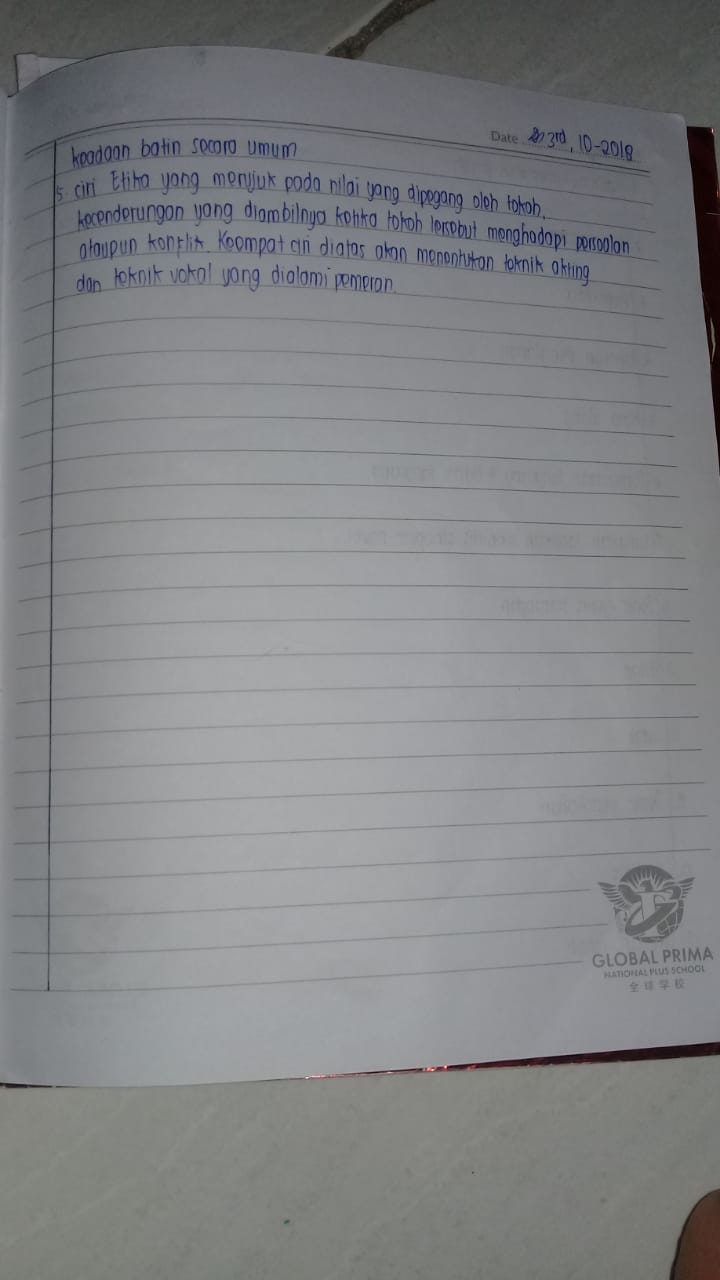 Date 3rd, 10-2018
keadaan batin secara umum
5. ciri Etika yang menujuk pada nilai yang dipegang oleh tokoh,
kecenderungan yang diambilnya ketika tokoh tersebut menghadapi persoalan
ataupun konflik. Keempat ciri diatas akan menentukan teknik akting
dan teknik vokal yang dialami pemeran.
GLOBAL PRIMA
NATIONAL PLUS SCHOOL
全球学校